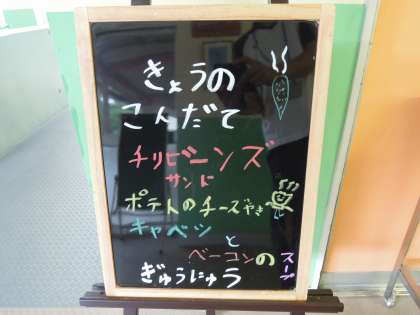 きょうの
こんだて
チリビーンズ
サンド
ポテトのチーズやき
キャベツ
と
ベーコンの
スープ
ぎゅうにゅう